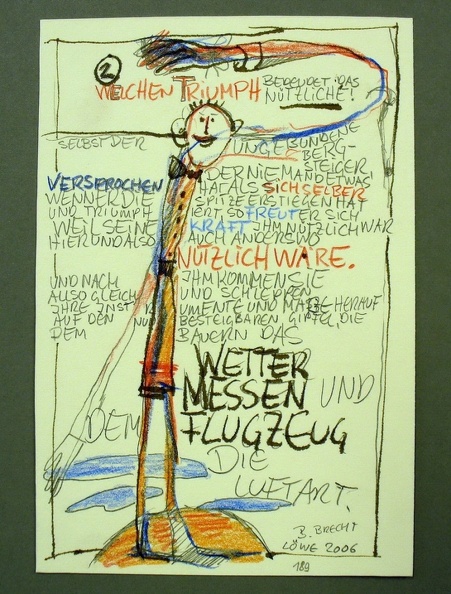 2
WELCHEN TRIUMPH BEDEUTET DAS
NÜTZLICHE!
SELBST DER UNGEBUNDENE
BERG-
STEIGER
DER NIEMAND ETWAS
VERSPROCHEN HAT ALS SICH SELBER
WENN ER DIE SPITZE ERSTIEGEN HAT
UND TRIUMPH IERT SO FREUT ER SICH
WEIL SEINE KRAFT IHM NÜTZLICH WAR
HIER UND ALSO AUCH ANDERSWO
NÜTZLICH WÄRE.
UND NACH IHM KOMMEN SIE
ALLSOGLEICH UND SCHLEPPEN
IHRE INSTR UMENTE UND MAßE HERAUF
AUF DEN NUN BESTEIGBAREN GIPFEL, DIE
DEM BAUERN DAS
WETTER
MESSEN UND
DEM FLUGZEUG
DIE
LUFTART.
B. BRECHT
LÖWE 2006
189